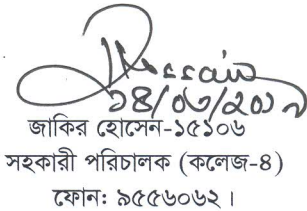 ১৪/০৬/২০১৭
জাকির হোসেন-১৫১০৬
সহকারী পরিচালক (কলেজ-৪)
ফোন: ৯৫৫৬০৬২ ।